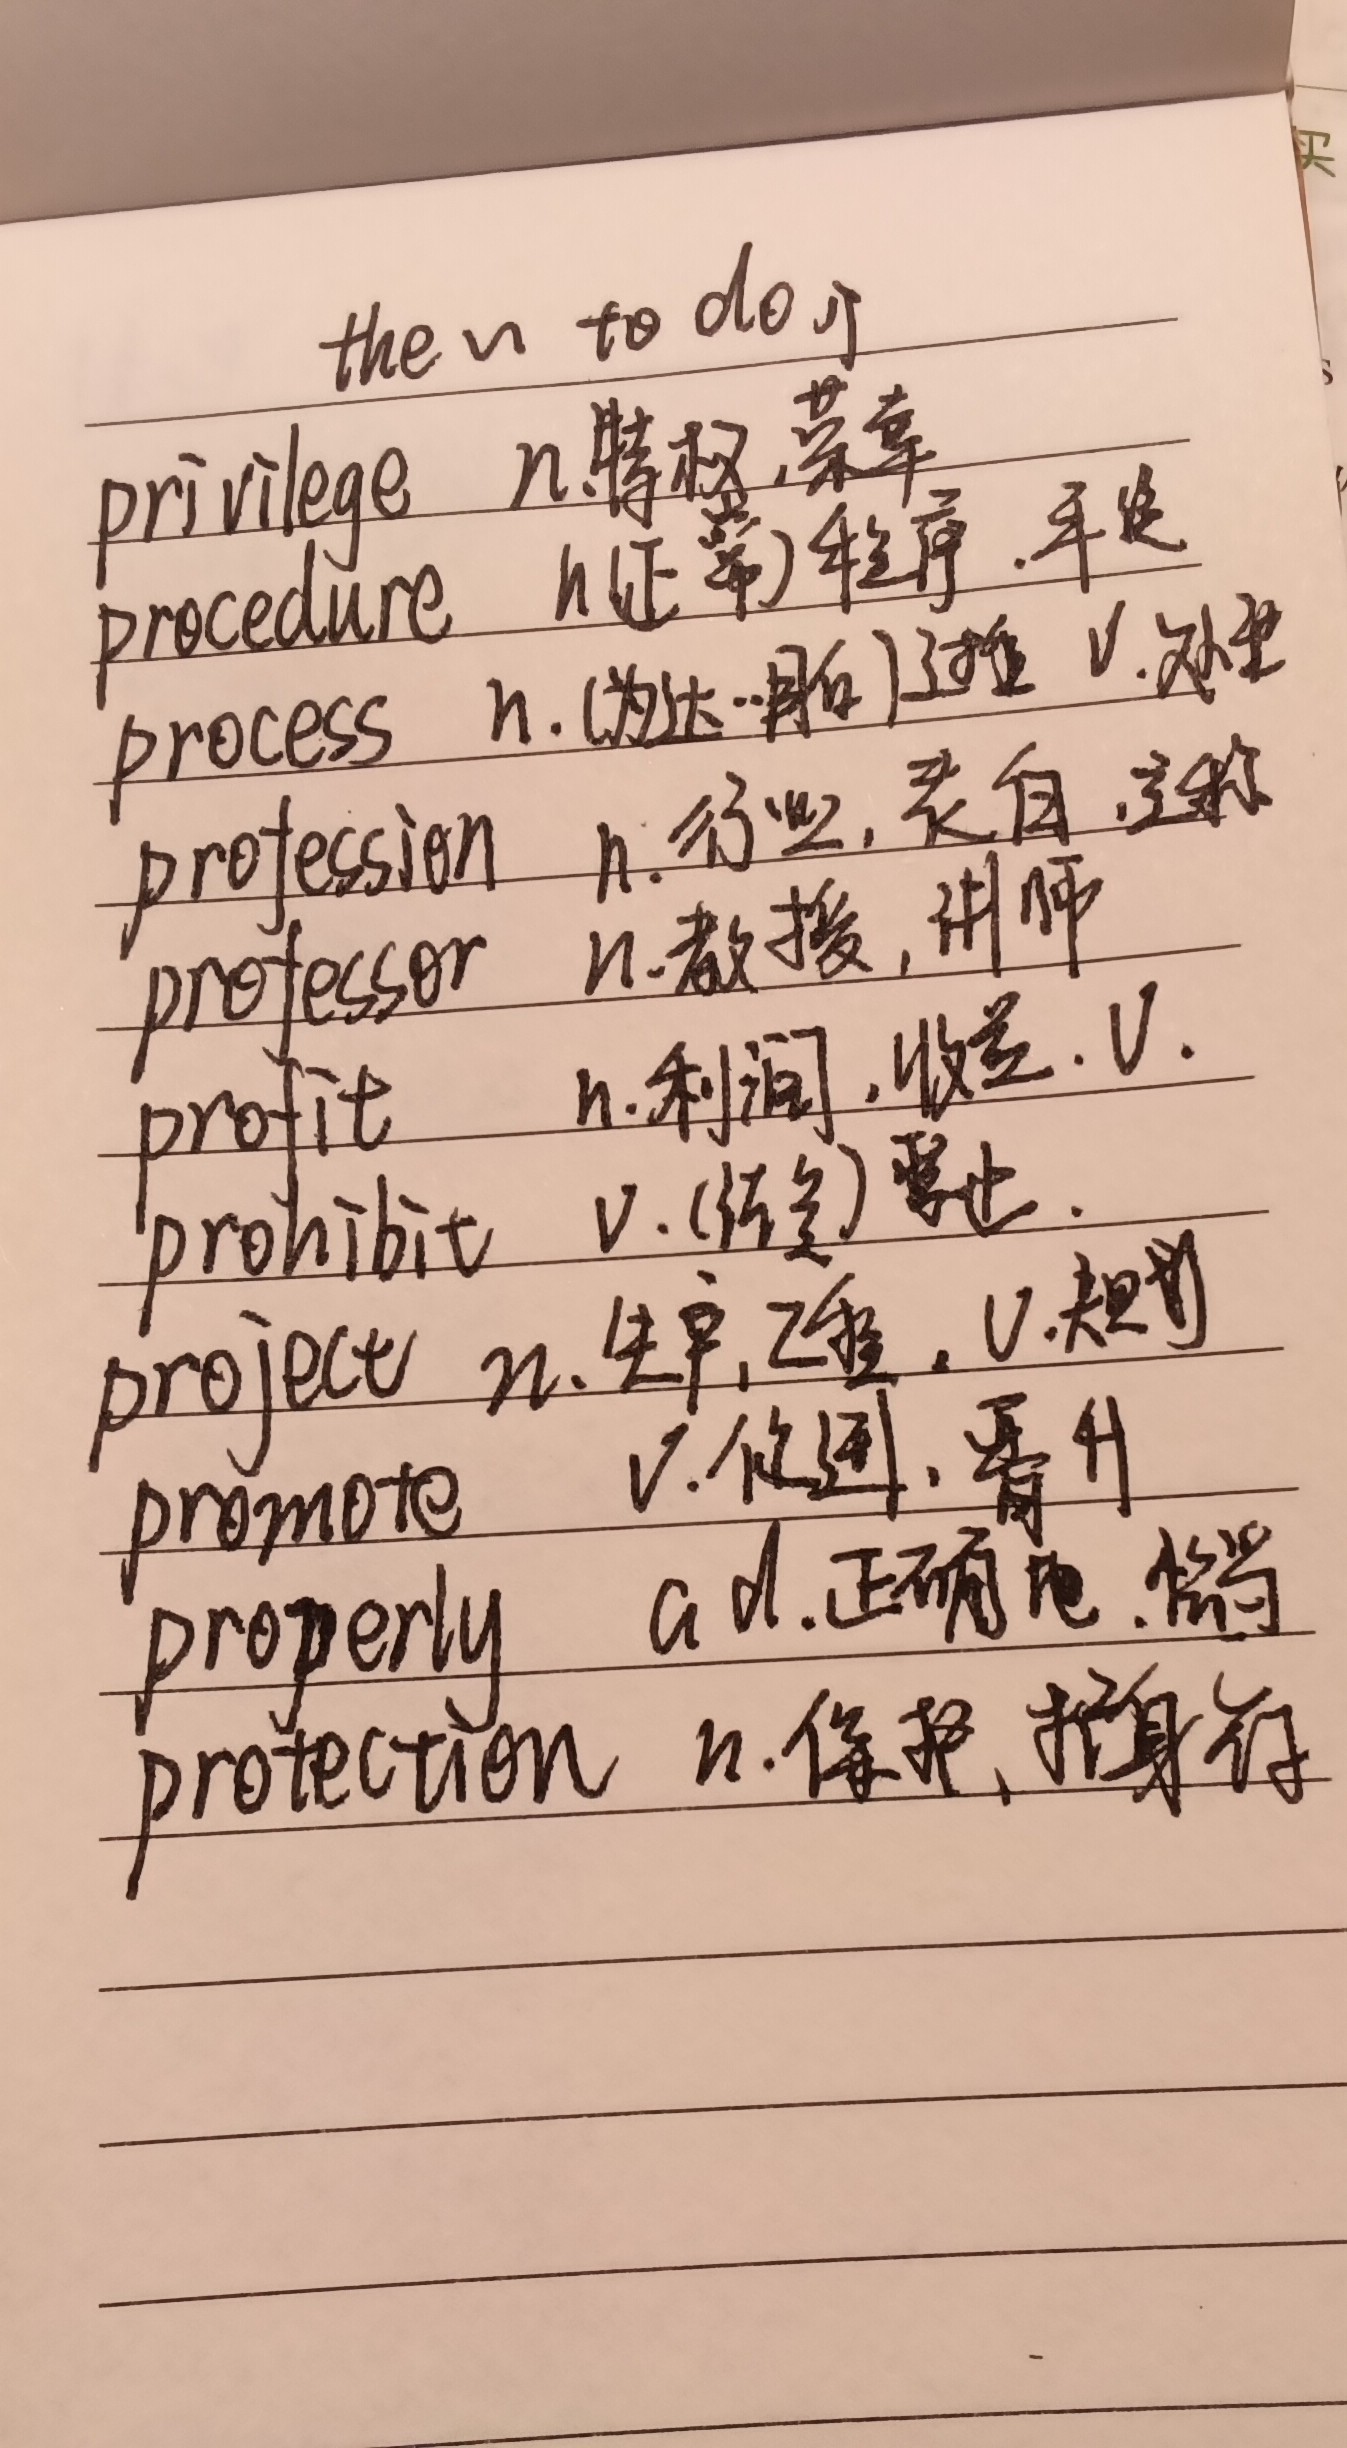 the n to do 于
privilege n.特权,荣幸
procedure n(正常)程序.手定
process n.(为达…目的)过程 v.处理
profession n.行业,表白.宣称
professor n.教授,讲师
profit n.利润.收益.v.
prohibit v.(法定)禁止.
project n.生产,工程.v.规划
promote v.促进.晋升
properly ad.正确地.恰当
protection n.保护、护身符
买
s